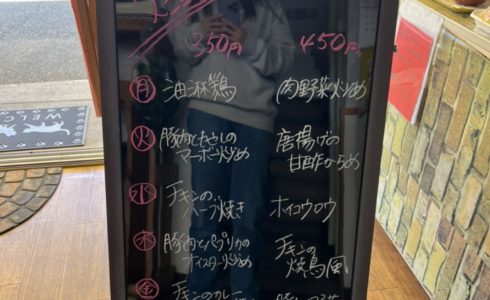 350円 450円
月 油淋鶏 肉野菜炒め
火 豚肉ともやしの 唐揚げの
マーボー炒め 甘酢からめ
水 チキンの
ハーブ焼き ホイコウロウ
木 豚肉とパプリカの チキンの
オイスター炒め 焼鳥風
金 チキンのカレー
WELC